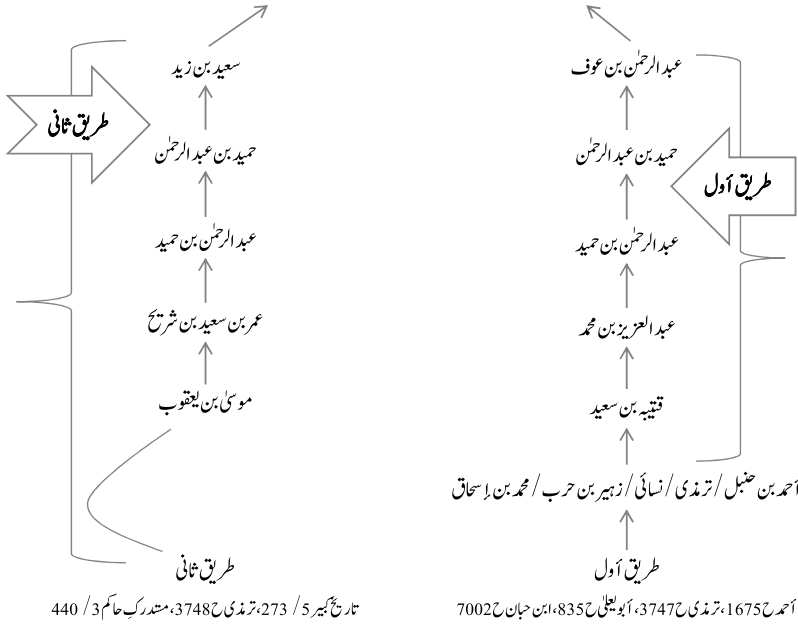 عبد الرحمٰن بن عوف
حمید بن عبد الرحمٰن
عبد الرحمٰن بن حمید
عبد العزیز بن محمد
قتیبہ بن سعید
أحمد بن حنبل / ترمذی / نسائی / زہیر بن حرب / محمد بن إسحاق
طریق أول
أحمد ح1675، ترمذی ح3747، أبو یعلیٰ ح835، ابن حبان ح7002
طریق أول
سعید بن زید
حمید بن عبد الرحمٰن
عبد الرحمٰن بن حمید
عمر بن سعید بن شریح
موسیٰ بن یعقوب
طریق ثانی
تاریخ کبیر 5/ 273، ترمذی ح3748، مستدرک حاکم 3/ 440
طریق ثانی